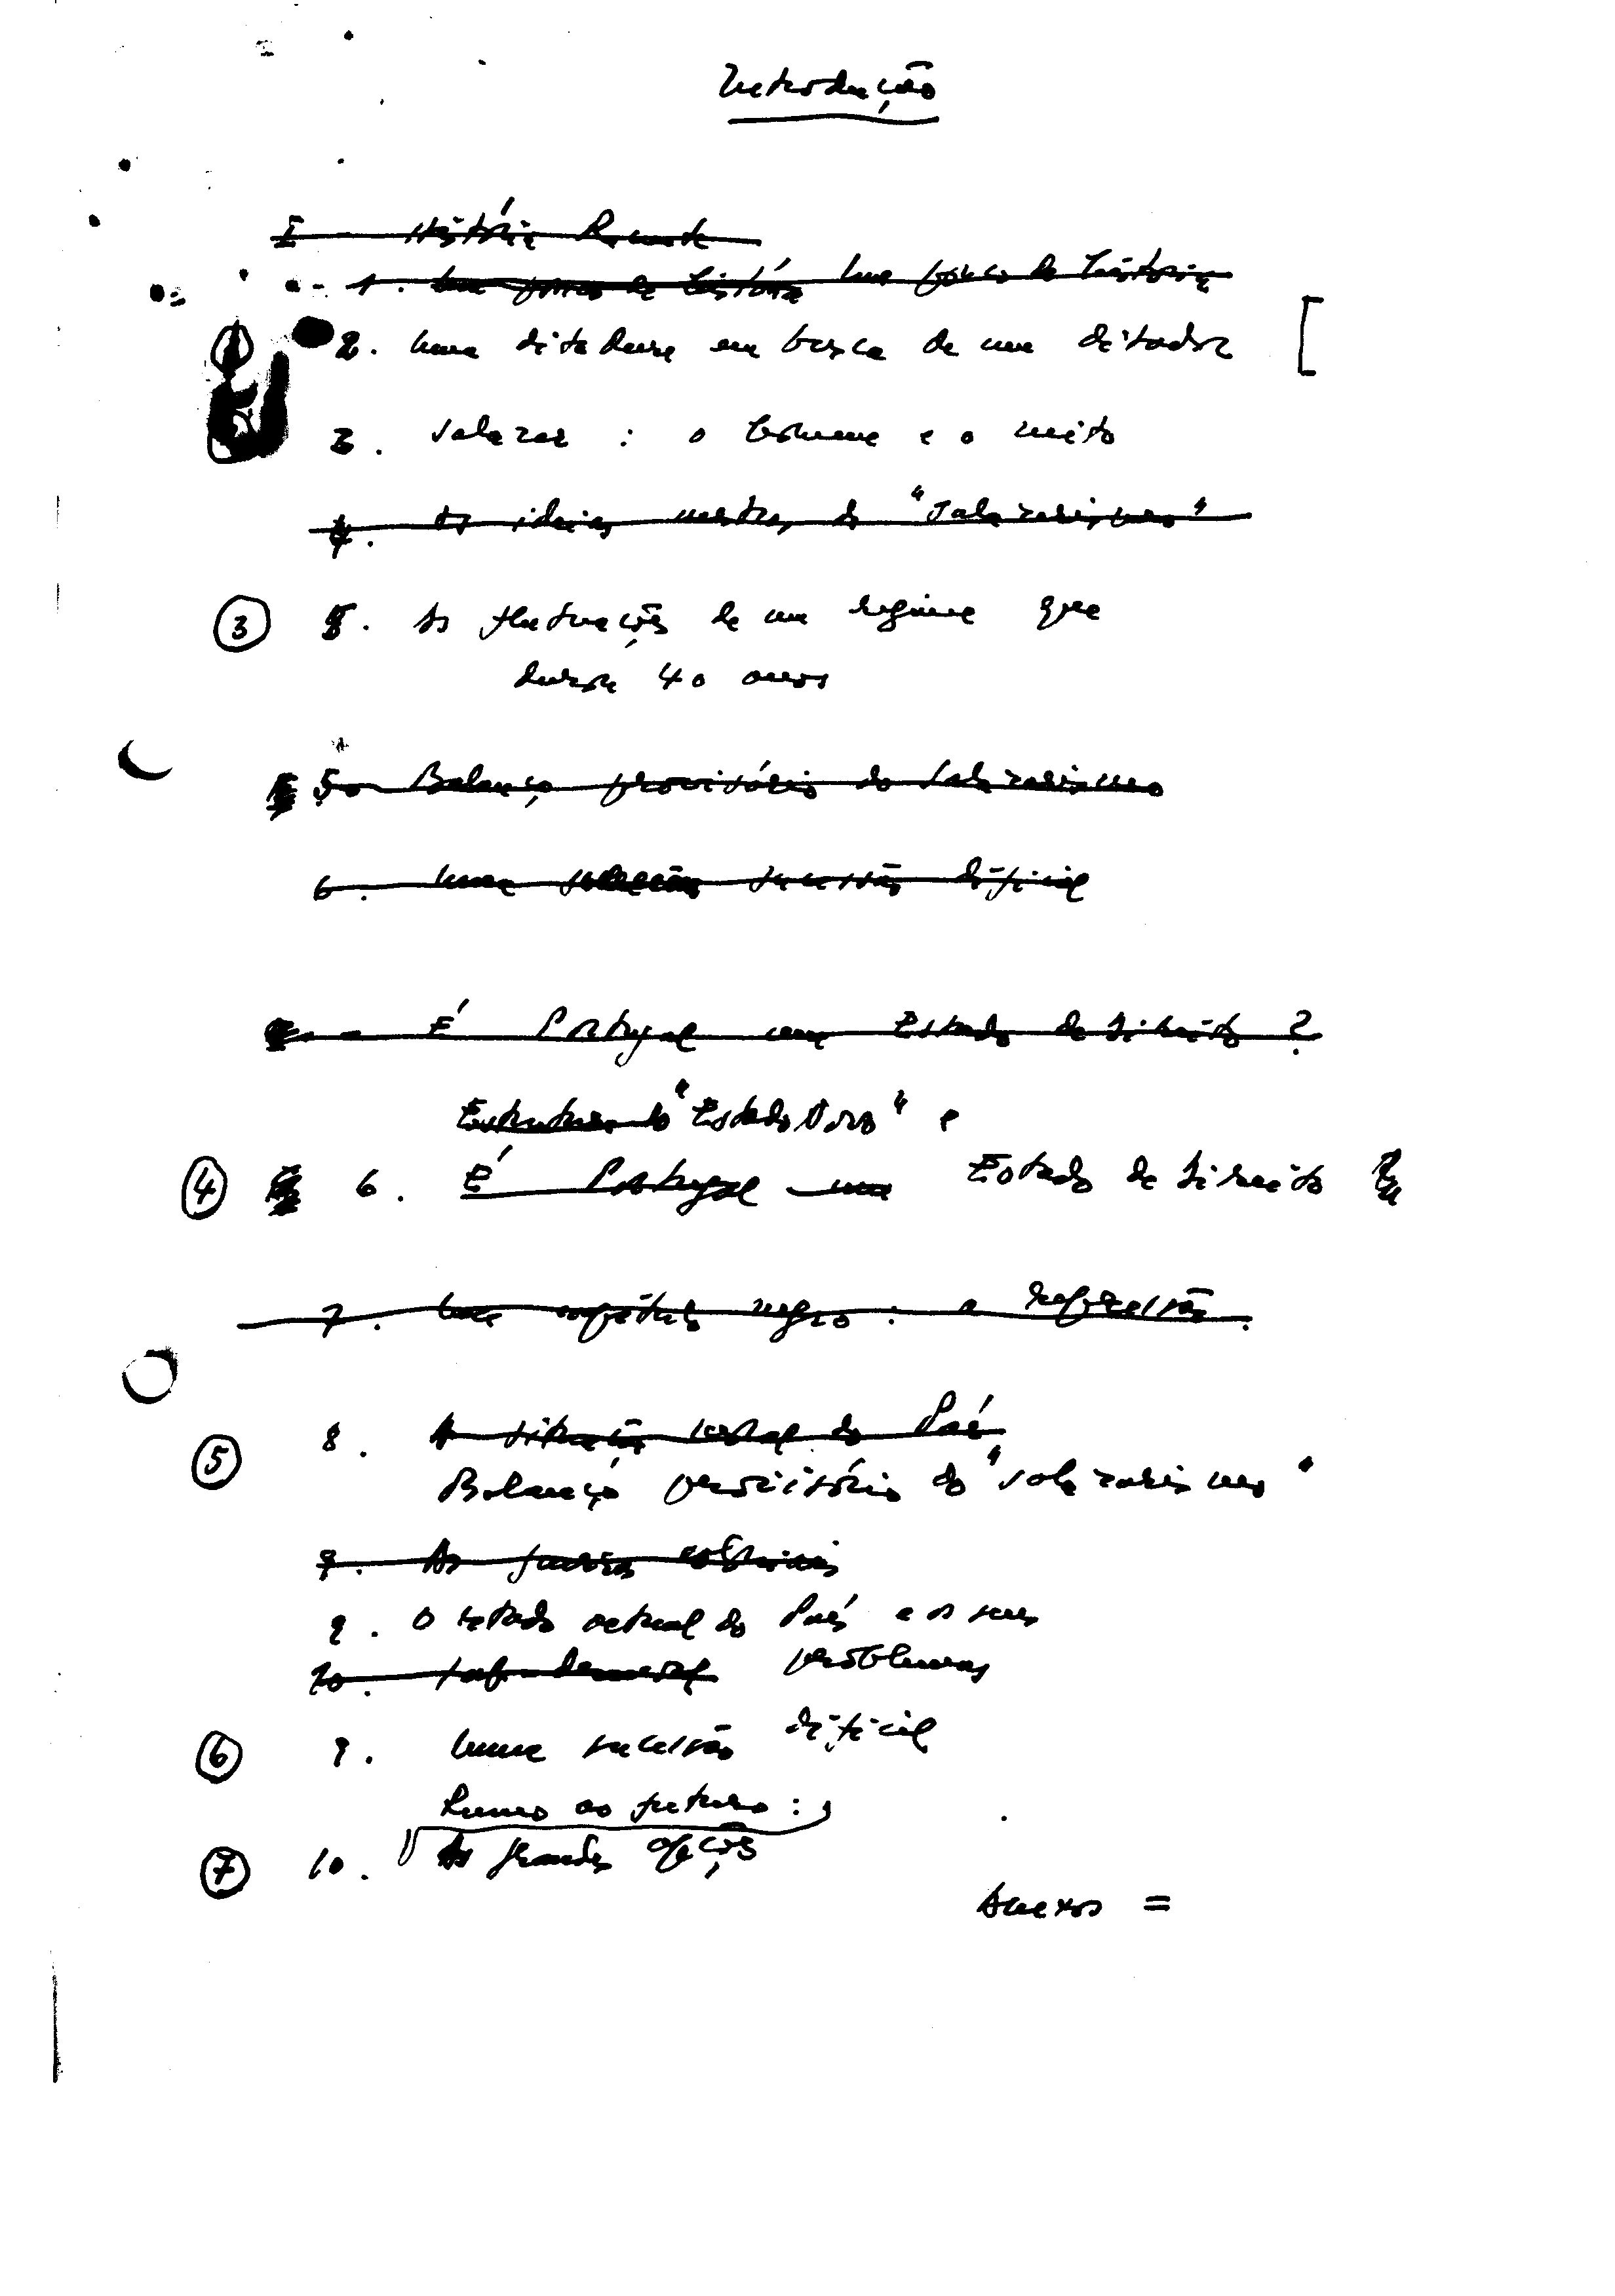 Introdução
I - História Recente
1. Um pouco de história Um pouco de história
2. Uma ditadura em busca de um ditador [
3. Salazar : o homem e o mito
4. As ideias mestras do "Salazarismo"
③ 5. As flutuações de um regime que
durou 40 anos
5. Balanço provisório do Salazarismo
6. Uma sucessão difícil
- É Portugal um Estado de Direito ?
Estrutura do "Estado Novo" e
④ 6. É Portugal um Estado de Direito ?
7. Um capítulo negro : a repressão.
⑤ 8. A situação actual do País
Balanço provisório do "Salazarismo"
9. As guerras coloniais
9. O estado actual do País e os seus
10. problemas
⑥ 9. Uma sucessão difícil
Rumo ao futuro :
⑦ 10. As grandes opções
Anexos =